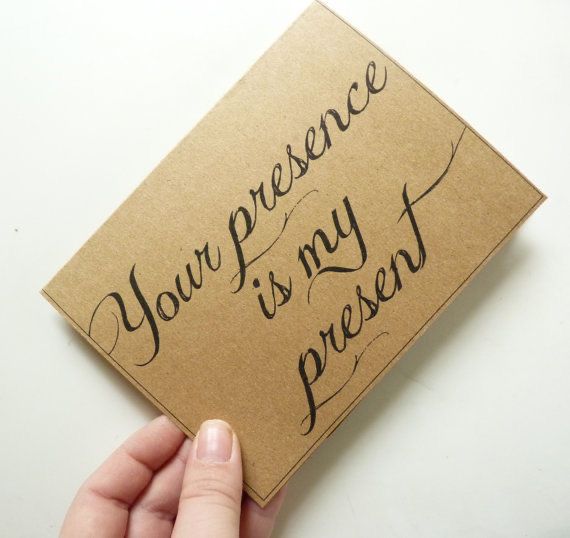 Your presence
is my
present